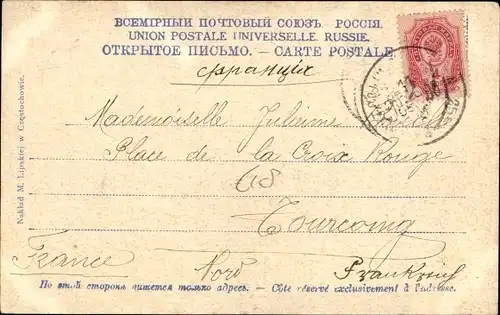 ВСЕМІРНЫЙ ПОЧТОВЫЙ СОЮЗЪ. РОССІЯ.
UNION POSTALE UNIVERSELLE. RUSSIE.
ОТКРЫТОЕ ПИСЬМО. — CARTE POSTALE.
Франція
Mademoiselle Julienne
Place de la Croix Rouge
68
Tourcoing
France Nord Frankreich
По этой сторонѣ пишется только адресъ. — Côté réservé exclusivement à l'adresse.
Nakład M. Lipskiej w Częstochowie.